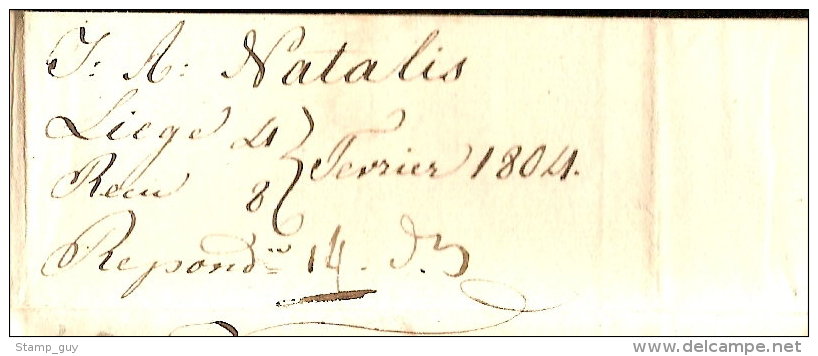 J: A: Natalis
Liege 4
Fevrier 1804.
Recu 8
Repond 14. d.
Stamp_guy
delcampe.net